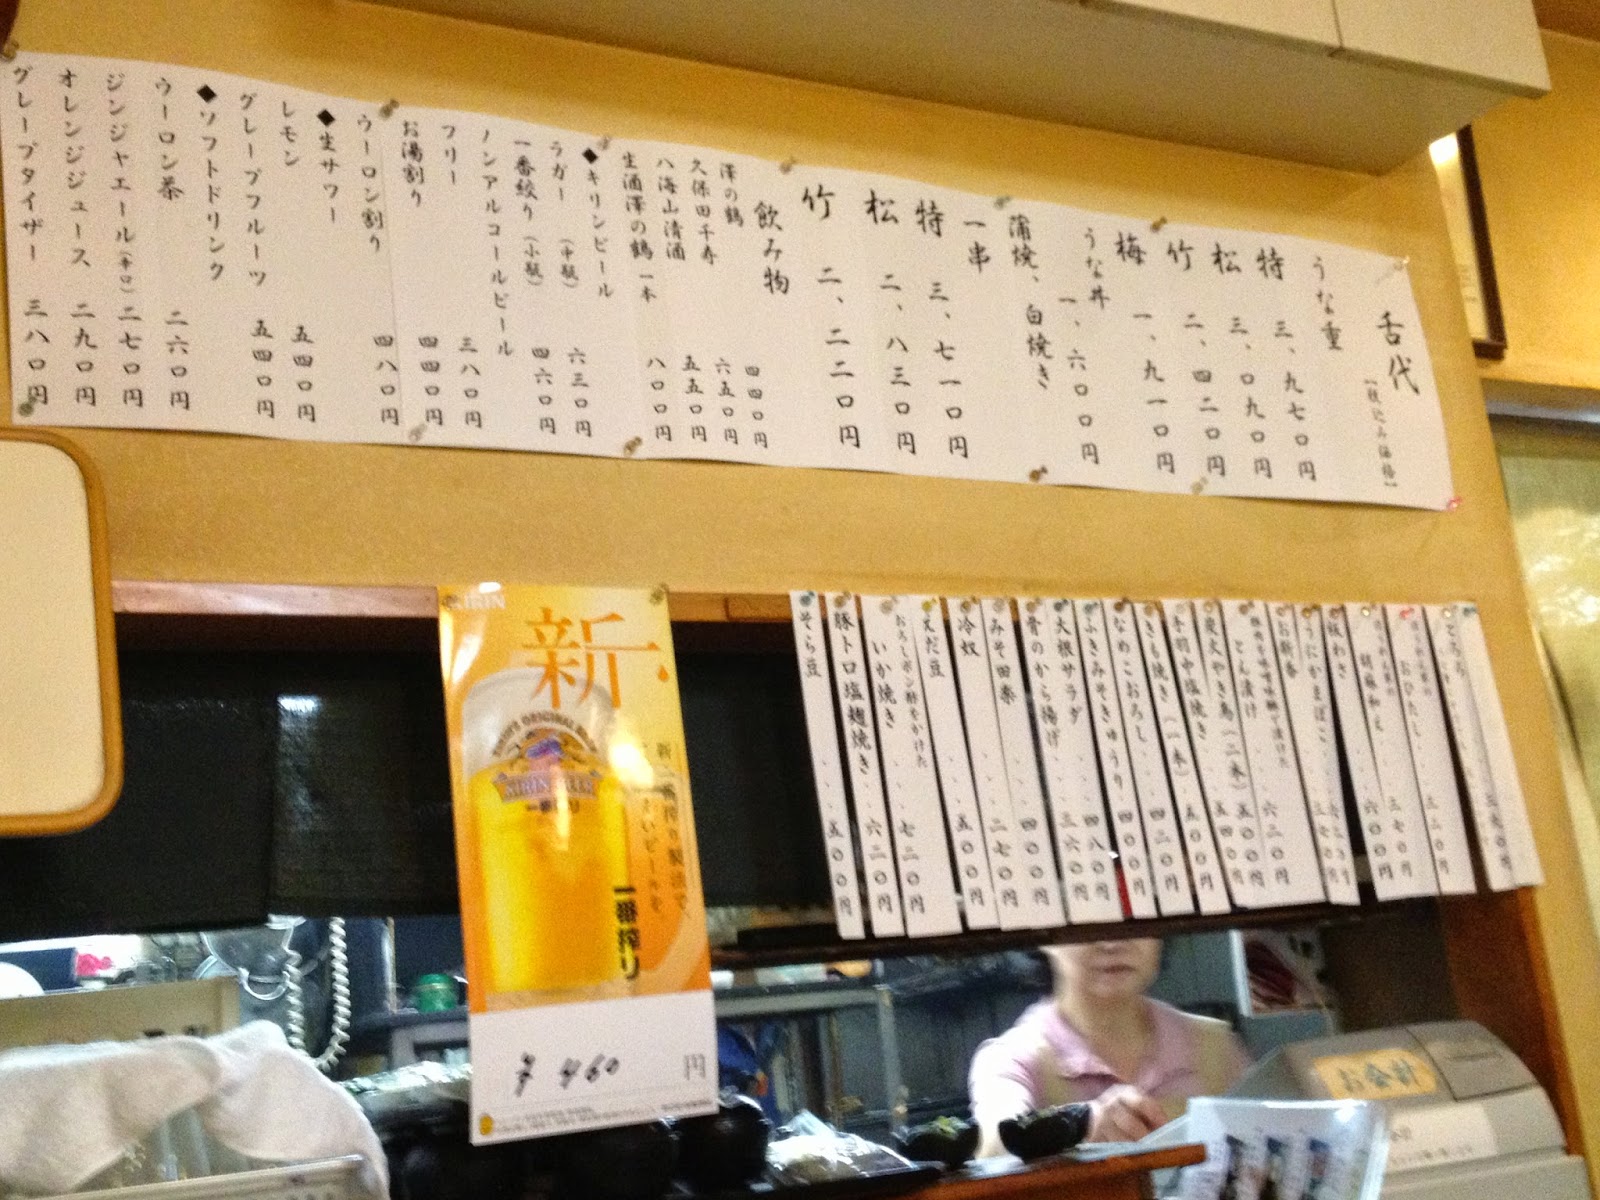 舌代
【税込み価格】
うな重
特 三、九七〇円
松 三、〇九〇円
竹 二、四二〇円
梅 一、九一〇円
うな丼 一、六〇〇円
蒲焼、白焼き
一串
特 三、七一〇円
松 二、八三〇円
竹 二、二二〇円
飲み物
澤の鶴 四四〇円
久保田千寿 六五〇円
八海山清酒 五五〇円
生酒澤の鶴 一本 八〇〇円
◆キリンビール
ラガー (中瓶) 六三〇円
一番絞り (小瓶) 四六〇円
ノンアルコールビール
フリー 三八〇円
お湯割り 四四〇円
ウーロン割り 四八〇円
◆生サワー
レモン 五四〇円
グレープフルーツ 五四〇円
◆ソフトドリンク
ウーロン茶 二六〇円
ジンジャエール(辛口) 二七〇円
オレンジジュース 二九〇円
グレープタイザー 三八〇円
とろろ
おひたし 三七〇円
胡麻和え
六〇〇円
板わさ
うにかまぼこ
お新香
とん漬け 五〇〇円
六二〇円
炭火やき鳥(二本) 五四〇円
手羽中塩焼き 五〇〇円
きも焼き(一本) 四二〇円
なめこおろし 四〇〇円
ふきみそきゅうり 四八〇円
大根サラダ 三六〇円
骨のから揚げ 四〇〇円
みそ田楽 二七〇円
冷奴 五〇〇円
えだ豆
おろしポン酢をかけた
七二〇円
いか焼き 六二〇円
豚トロ塩麹焼き
そら豆 五〇〇円
KIRIN
新
KIRIN BEER
一番搾り
新・一番搾り製法で、
うまいビールを
一番搾り
¥ 460 円
お会計